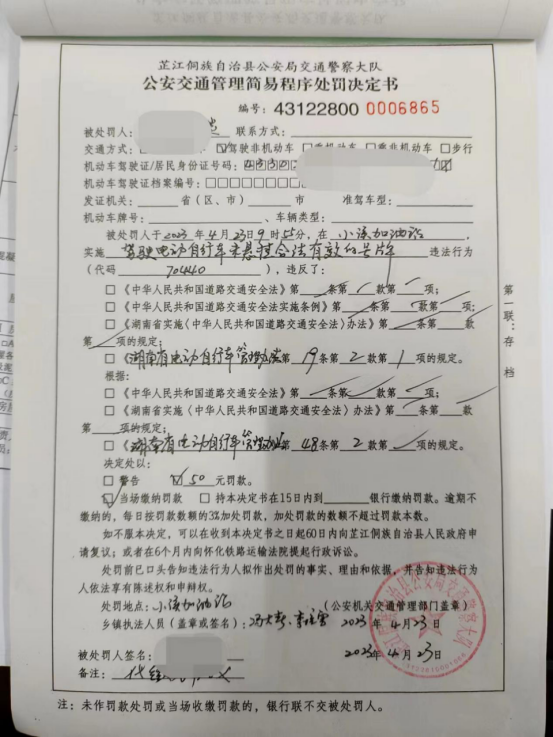 芷江侗族自治县公安局交通警察大队
公安交通管理简易程序处罚决定书
编号：43122800 0006865
被处罚人： 联系方式：
交通方式： ☑驾驶非机动车 □乘机动车 □乘非机动车 □步行
机动车驾驶证/居民身份证号码：
机动车驾驶证档案编号：□□□□□□
发证机关： 省（区、市） 市 准驾车型：
机动车牌号： 、车辆类型：
被处罚人于2023年4月23日9时55分，在 加油站 ，
实施 驾驶电动自行车未悬挂合法有效的号牌 违法行为
（代码 70440 ），违反了：
□《中华人民共和国道路交通安全法》第 条第 款第 项；
□《中华人民共和国道路交通安全法实施条例》第 条第 款第 项；
□《湖南省实施〈中华人民共和国道路交通安全法〉办法》第 条第 款
第 项的规定；
□《湖南省电动自行车管理办法第19条第2款第1项的规定。
根据：
□《中华人民共和国道路交通安全法》第 条第 款第 项；
□《湖南省实施〈中华人民共和国道路交通安全法〉办法》第 条第 款
第 项的规定；
□《湖南省电动自行车管理办法第48条第2款 项的规定。
决定处以：
□ 警告 ☑ 50 元罚款。
☑当场缴纳罚款 □ 持本决定书在15日内到 银行缴纳罚款。逾期不
缴纳的，每日按罚款数额的3%加处罚款，加处罚款的数额不超过罚款本数。
如不服本决定，可以在收到本决定书之日起60日内向芷江侗族自治县人民政府申
请复议；或者在6个月内向怀化铁路运输法院提起行政诉讼。
处罚前已口头告知违法行为人拟作出处罚的事实、理由和依据，并告知违法行为
人依法享有陈述权和申辩权。
处罚地点： 加油站 （公安机关交通管理部门盖章）
乡镇执法人员（盖章或签名）： 2023年4月23日
被处罚人签名： 2023年4月23日
备注：
注：未作罚款处罚或当场收缴罚款的，银行联不交被处罚人。
第一联：存档